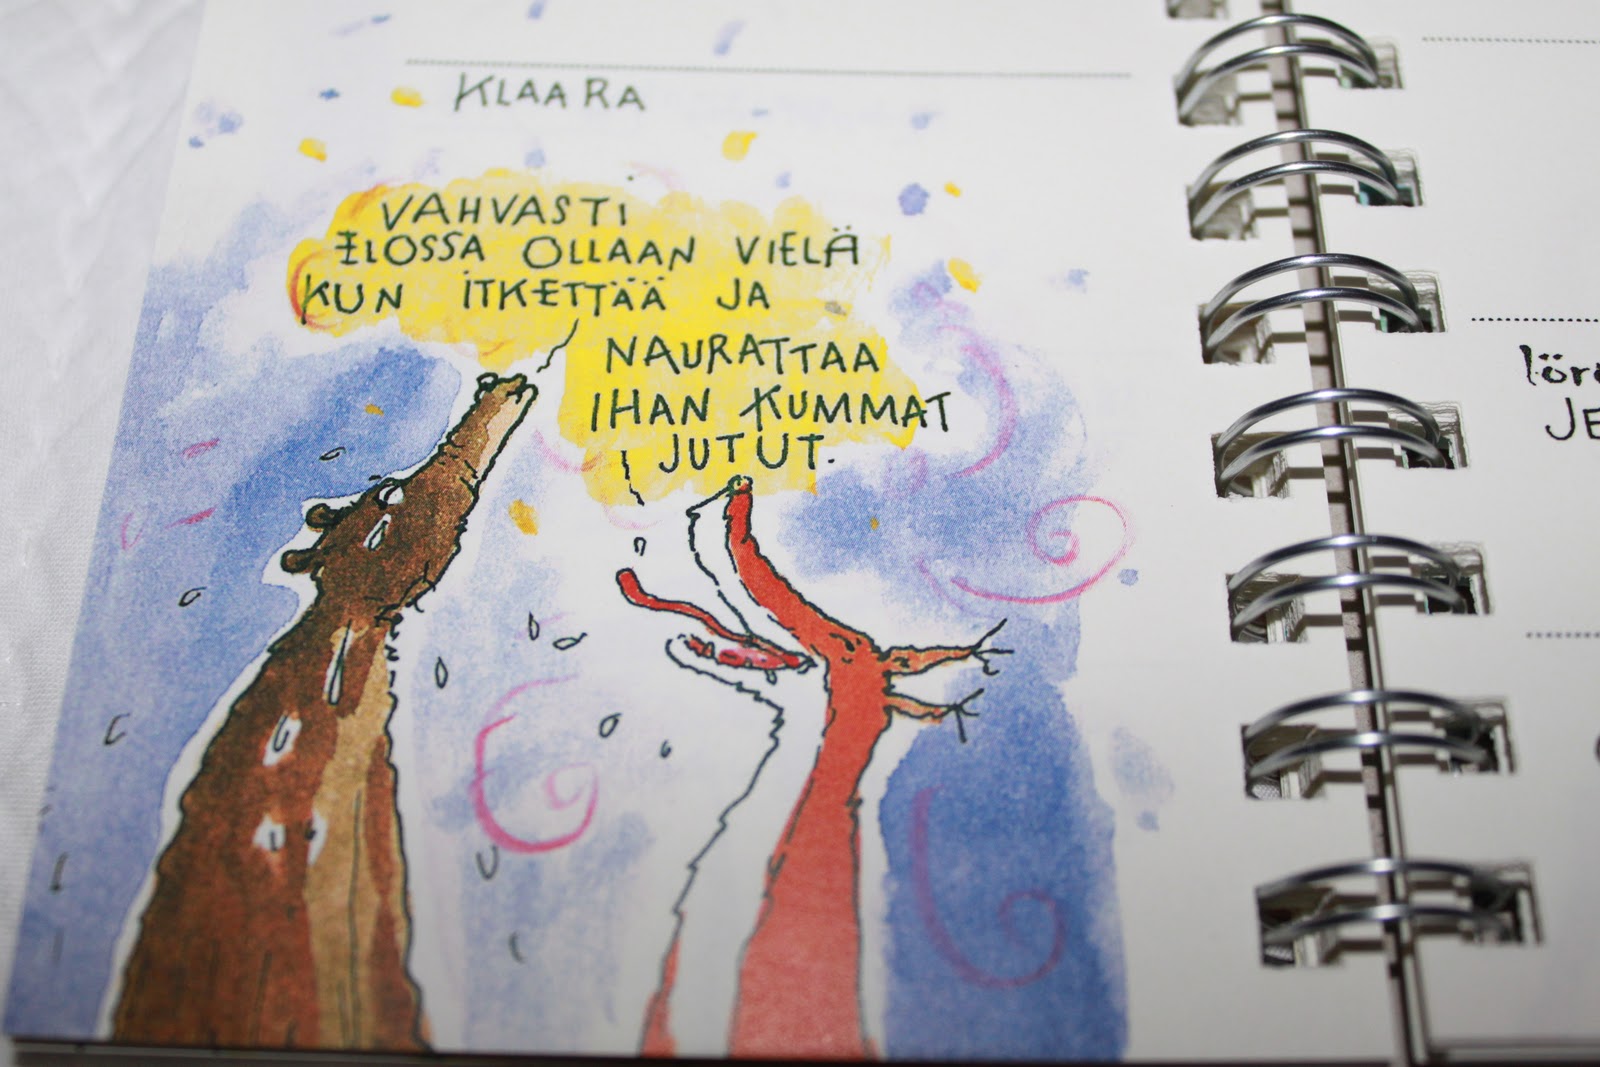 KLAARA
VAHVASTI
ELOSSA OLLAAN VIELÄ
KUN ITKETTÄÄ JA
NAURATTAA
IHAN KUMMAT
JUTUT.